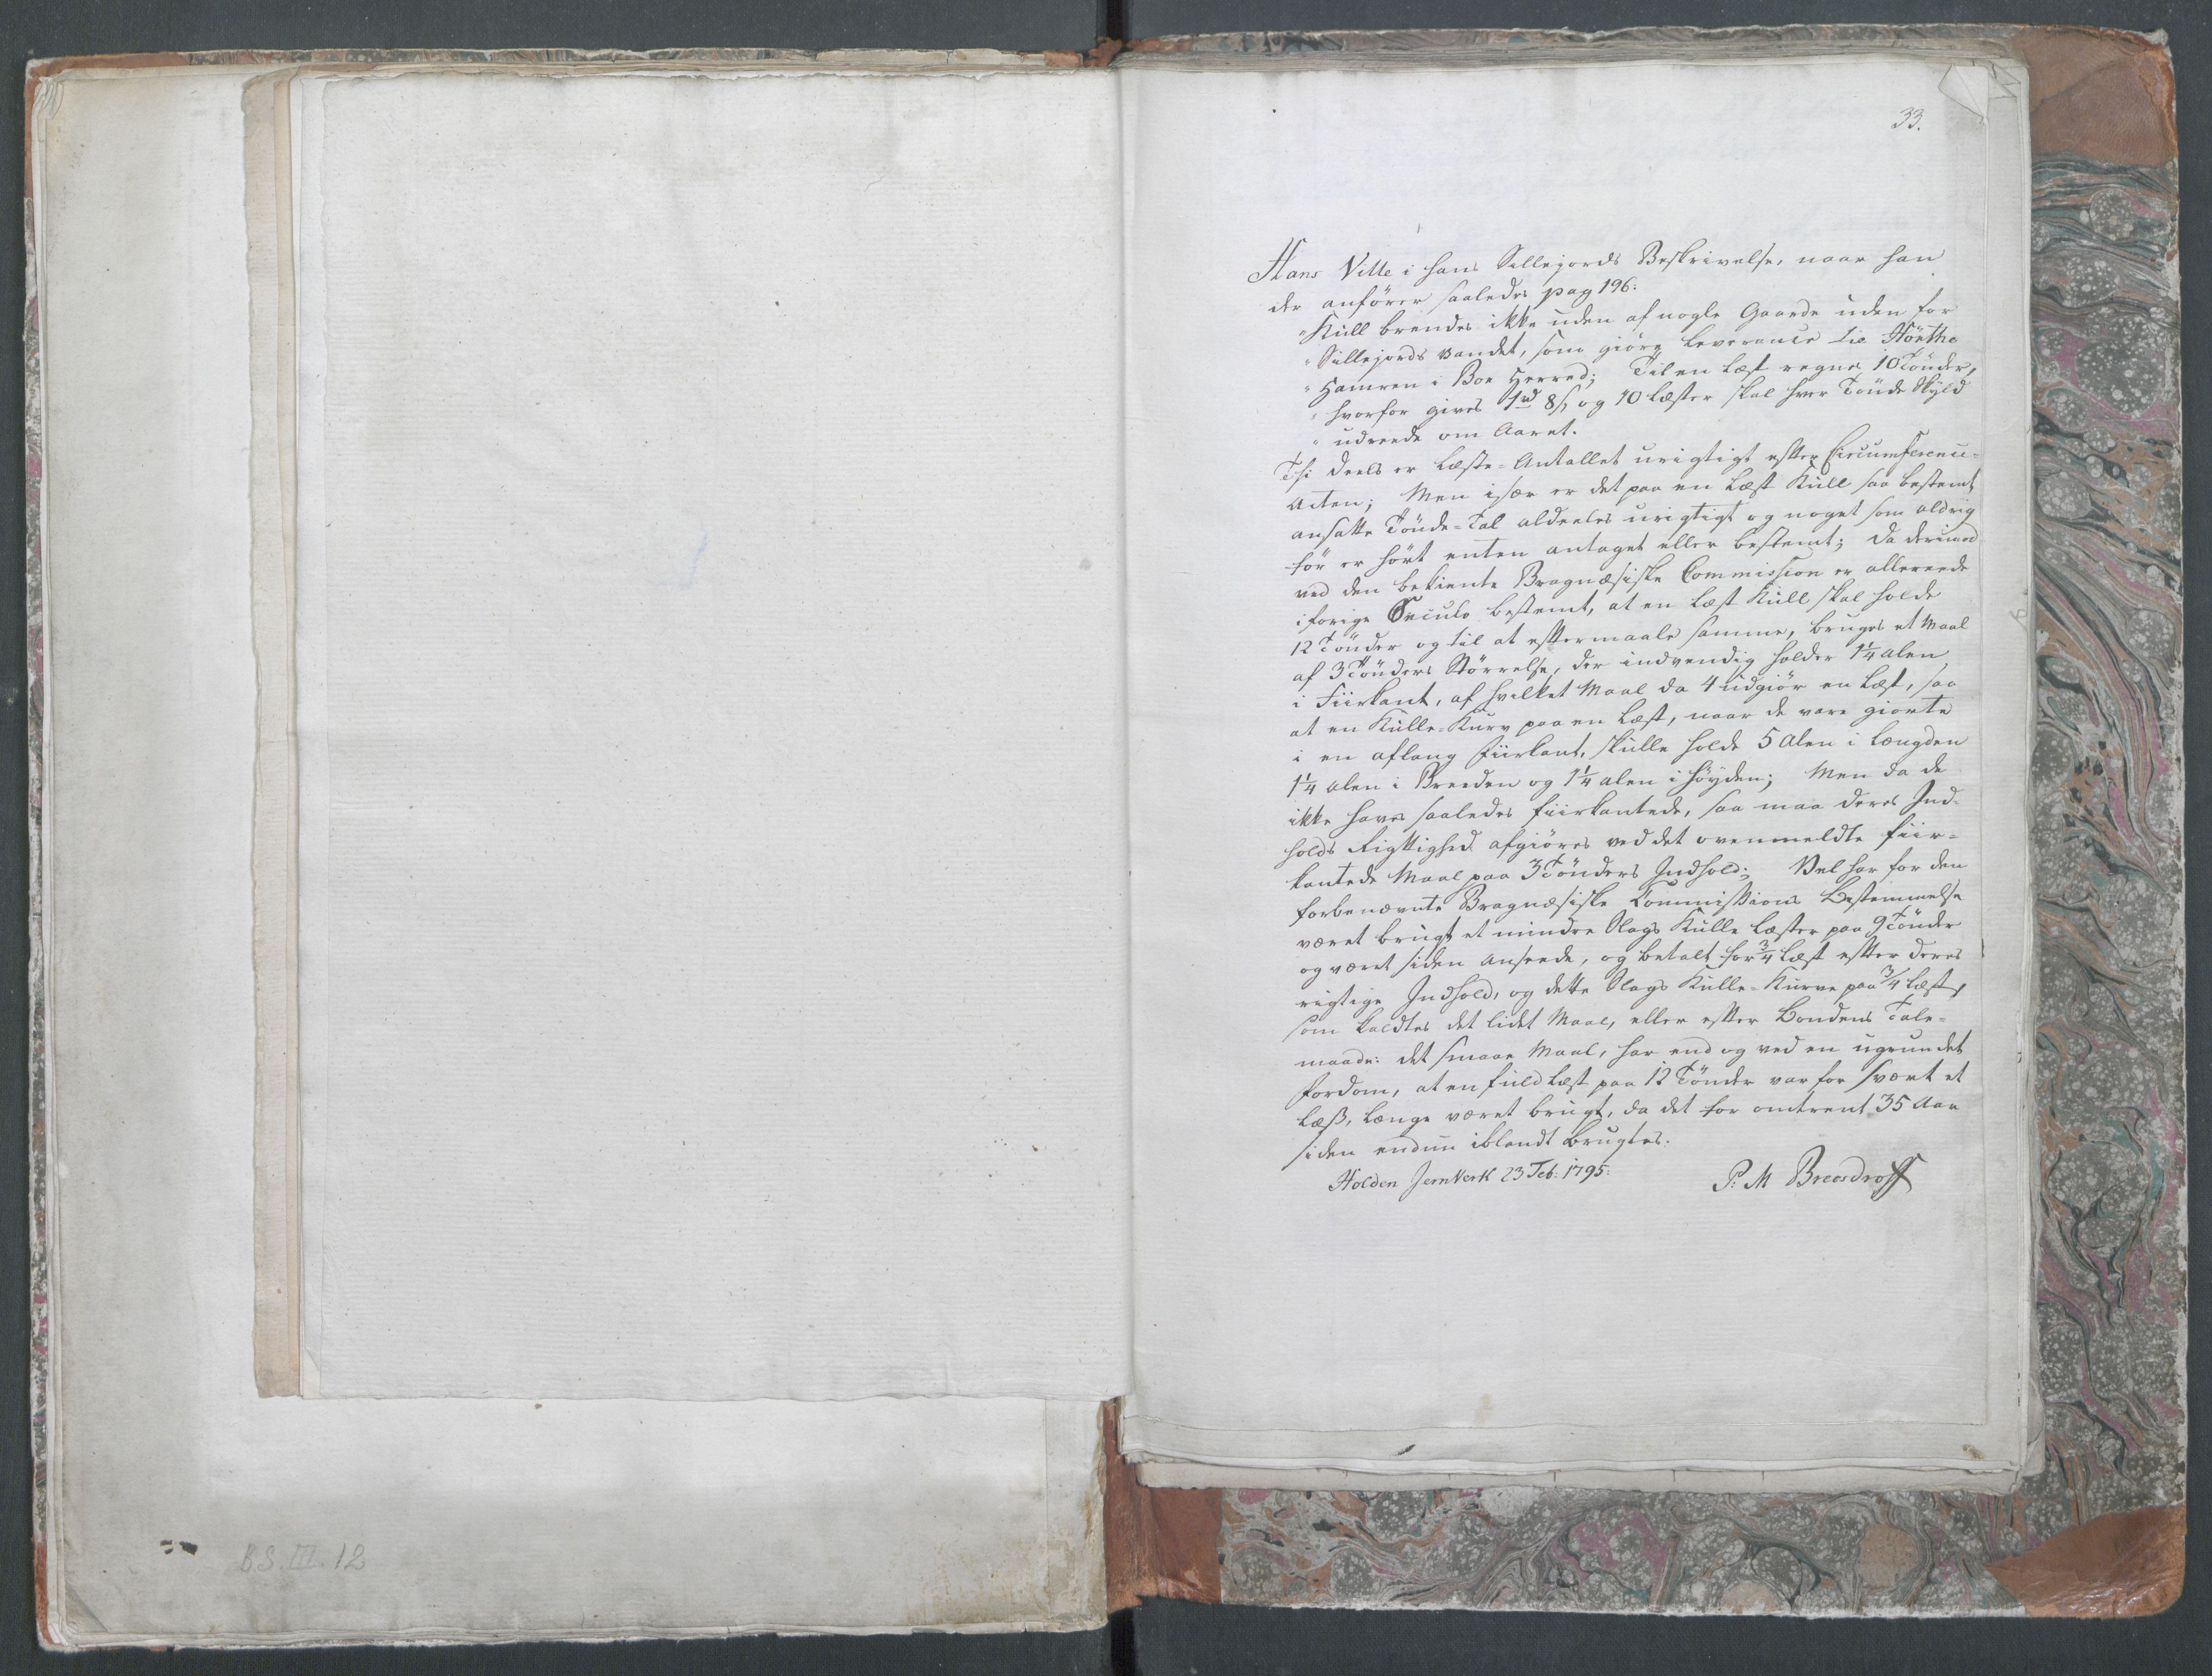 33.
Hans Wille i hans Sillejords Beskrivelse, naar han
der anförer saaledes pag 196:
"Kull brendes ikke uden af nogle Gaarde uden for
"Sillejords Vandet, som giöre Leverance til Hörthe
"Hamren i Boe Herred; Til en Læst regnes 10 Tönder,
"hvorfor gives 1rd 8 s, og 10 Læster skal hver Tönde Skyld
"udreede om Aaret.
Thi deels er Læste-Antallet urigtigt efter Circumferenc-
Acten; Men især er det paa en Læst Kull saa bestemt
ansatte Tönde-Tal aldeeles urigtigt og noget som aldrig
för er hört enten antaget eller bestemt; da derimod
ved den bekiente Bragnæsiske Commission er allereede
i forige Seculo bestemt, at en Læst Kull skal holde
12 Tönder og til at eftermaale samme, bruges et Maal
af 3 Tönders Störrelse, der indvendig holder 1 1/4 Alen
i Fiirkant, af hvilket Maal da 4 udgiör en Læst, saa
at en Kulle-Kurv paa en Læst, naar de vare giorte
i en aflang Fiirkant, skulle holde 5 Alen i Længden
1 1/4 Alen i Breeden og 1 1/4 Alen i Höyden; Men da de
ikke haves saaledes fiirkantede, saa maa deres Ind-
holds Rigtighed afgiöres ved det ovenmeldte fiir-
kantede Maal paa 3 Tönders Indhold; Vel har for den
forbenævnte Bragnæsiske Commissions Bestemmelse
været brugt et mindre Slags Kulle Læster paa 9 Tönder
og været siden anseede, og betalt for 3/4 Læst efter deres
rigtige Indhold, og dette Slags Kulle-Kurve paa 3/4 Læst,
som kaldtes det lidet Maal, eller efter Bondens Tale-
maade: det smaae Maal, har end og ved en ugrundet
Fordom, at en fuld Læst paa 12 Tönder var for svært et
Læss, længe været brugt, da det for omtrent 35 Aar
siden endnu iblandt brugtes.
Holden JernVerk 23 Feb: 1795:
P. M Breosdroff
BS. III. 12